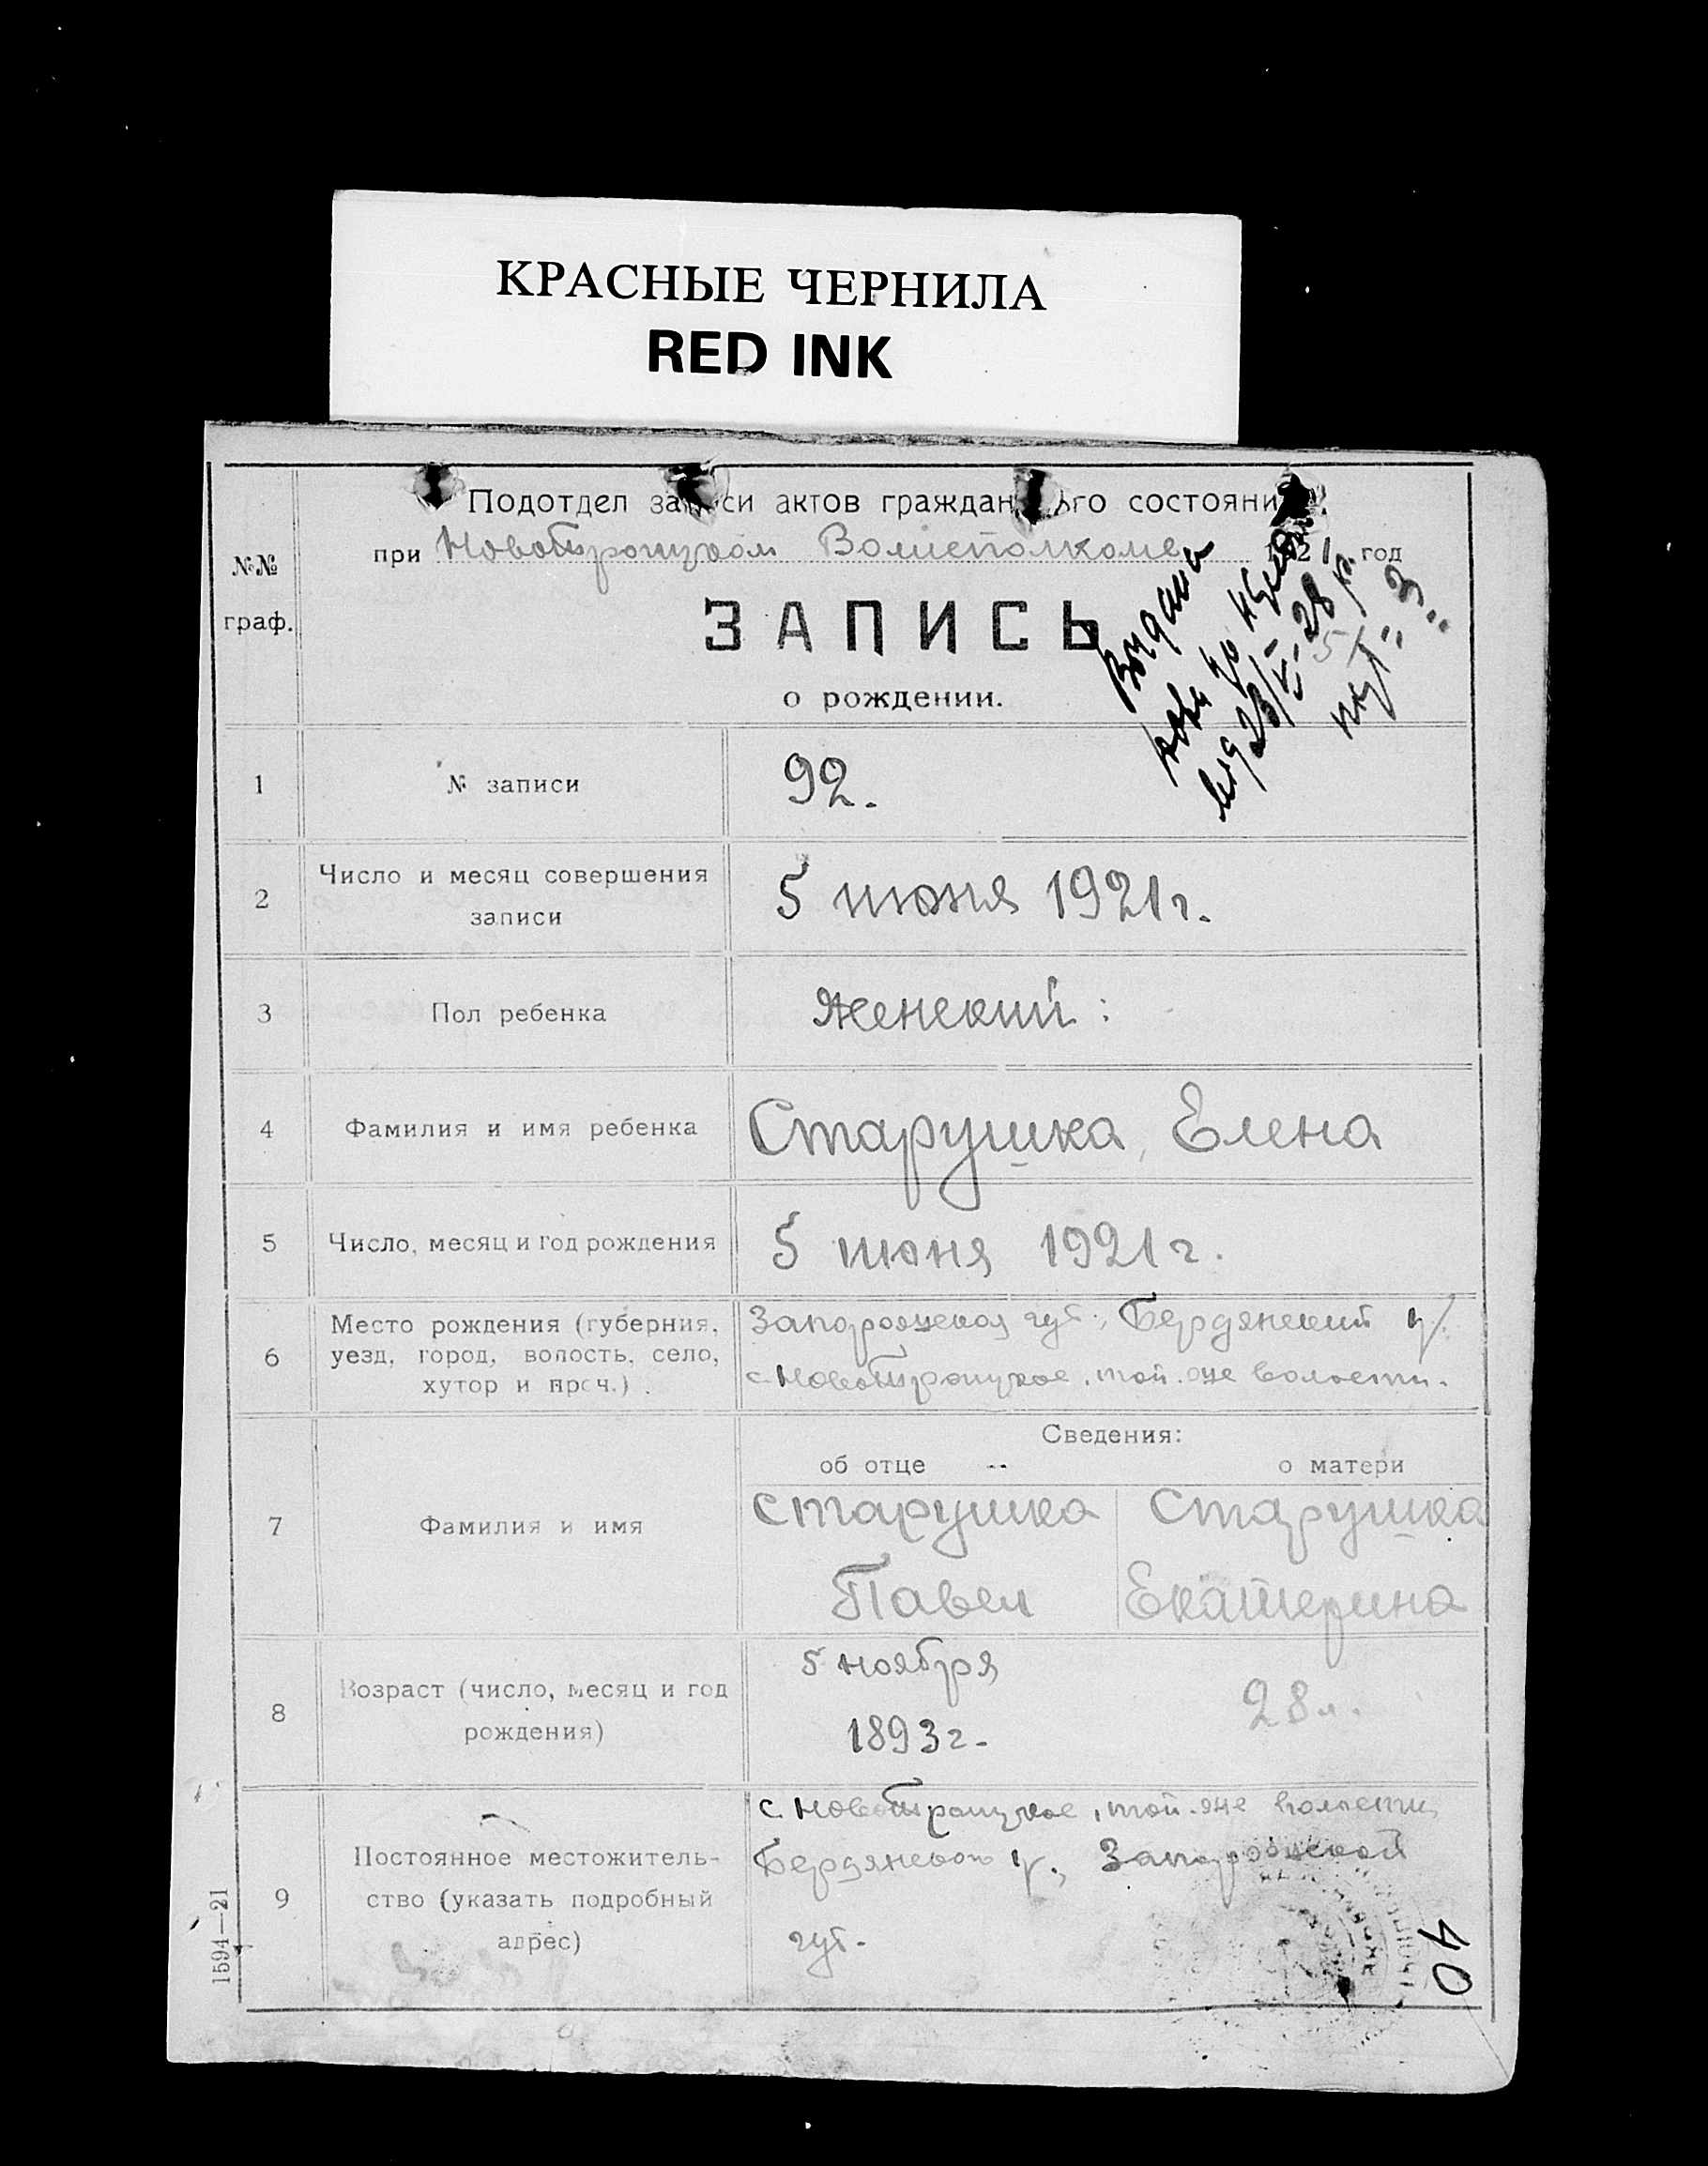 КРАСНЫЕ ЧЕРНИЛА
RED INK
Подотдел записи актов гражданского состояния.
при Новотроицком Волисполкоме 1921 год
№№
граф.
ЗАПИСЬ
о рождении.
1 № записи 92.
2 Число и месяц совершения записи 5 июня 1921 г.
3 Пол ребенка Женский:
4 Фамилия и имя ребенка Старушка, Елена
5 Число, месяц и год рождения 5 июня 1921 г.
6 Место рождения (губерния, уезд, город, волость, село, хутор и проч.)
Запорожская губ., Бердянский у.
с. Новотроицкое, той-же волости.
Сведения:
об отце -- о матери
7 Фамилия и имя
Старушка Старушка
Павел Екатерина
8 Возраст (число, месяц и год рождения)
5 ноября 28 л.
1893 г.
9 Постоянное местожитель-
ство (указать подробный
адрес)
с. Новотроицкое, той-же волости,
Бердянского у., Запорожской
губ.
1594—21
40